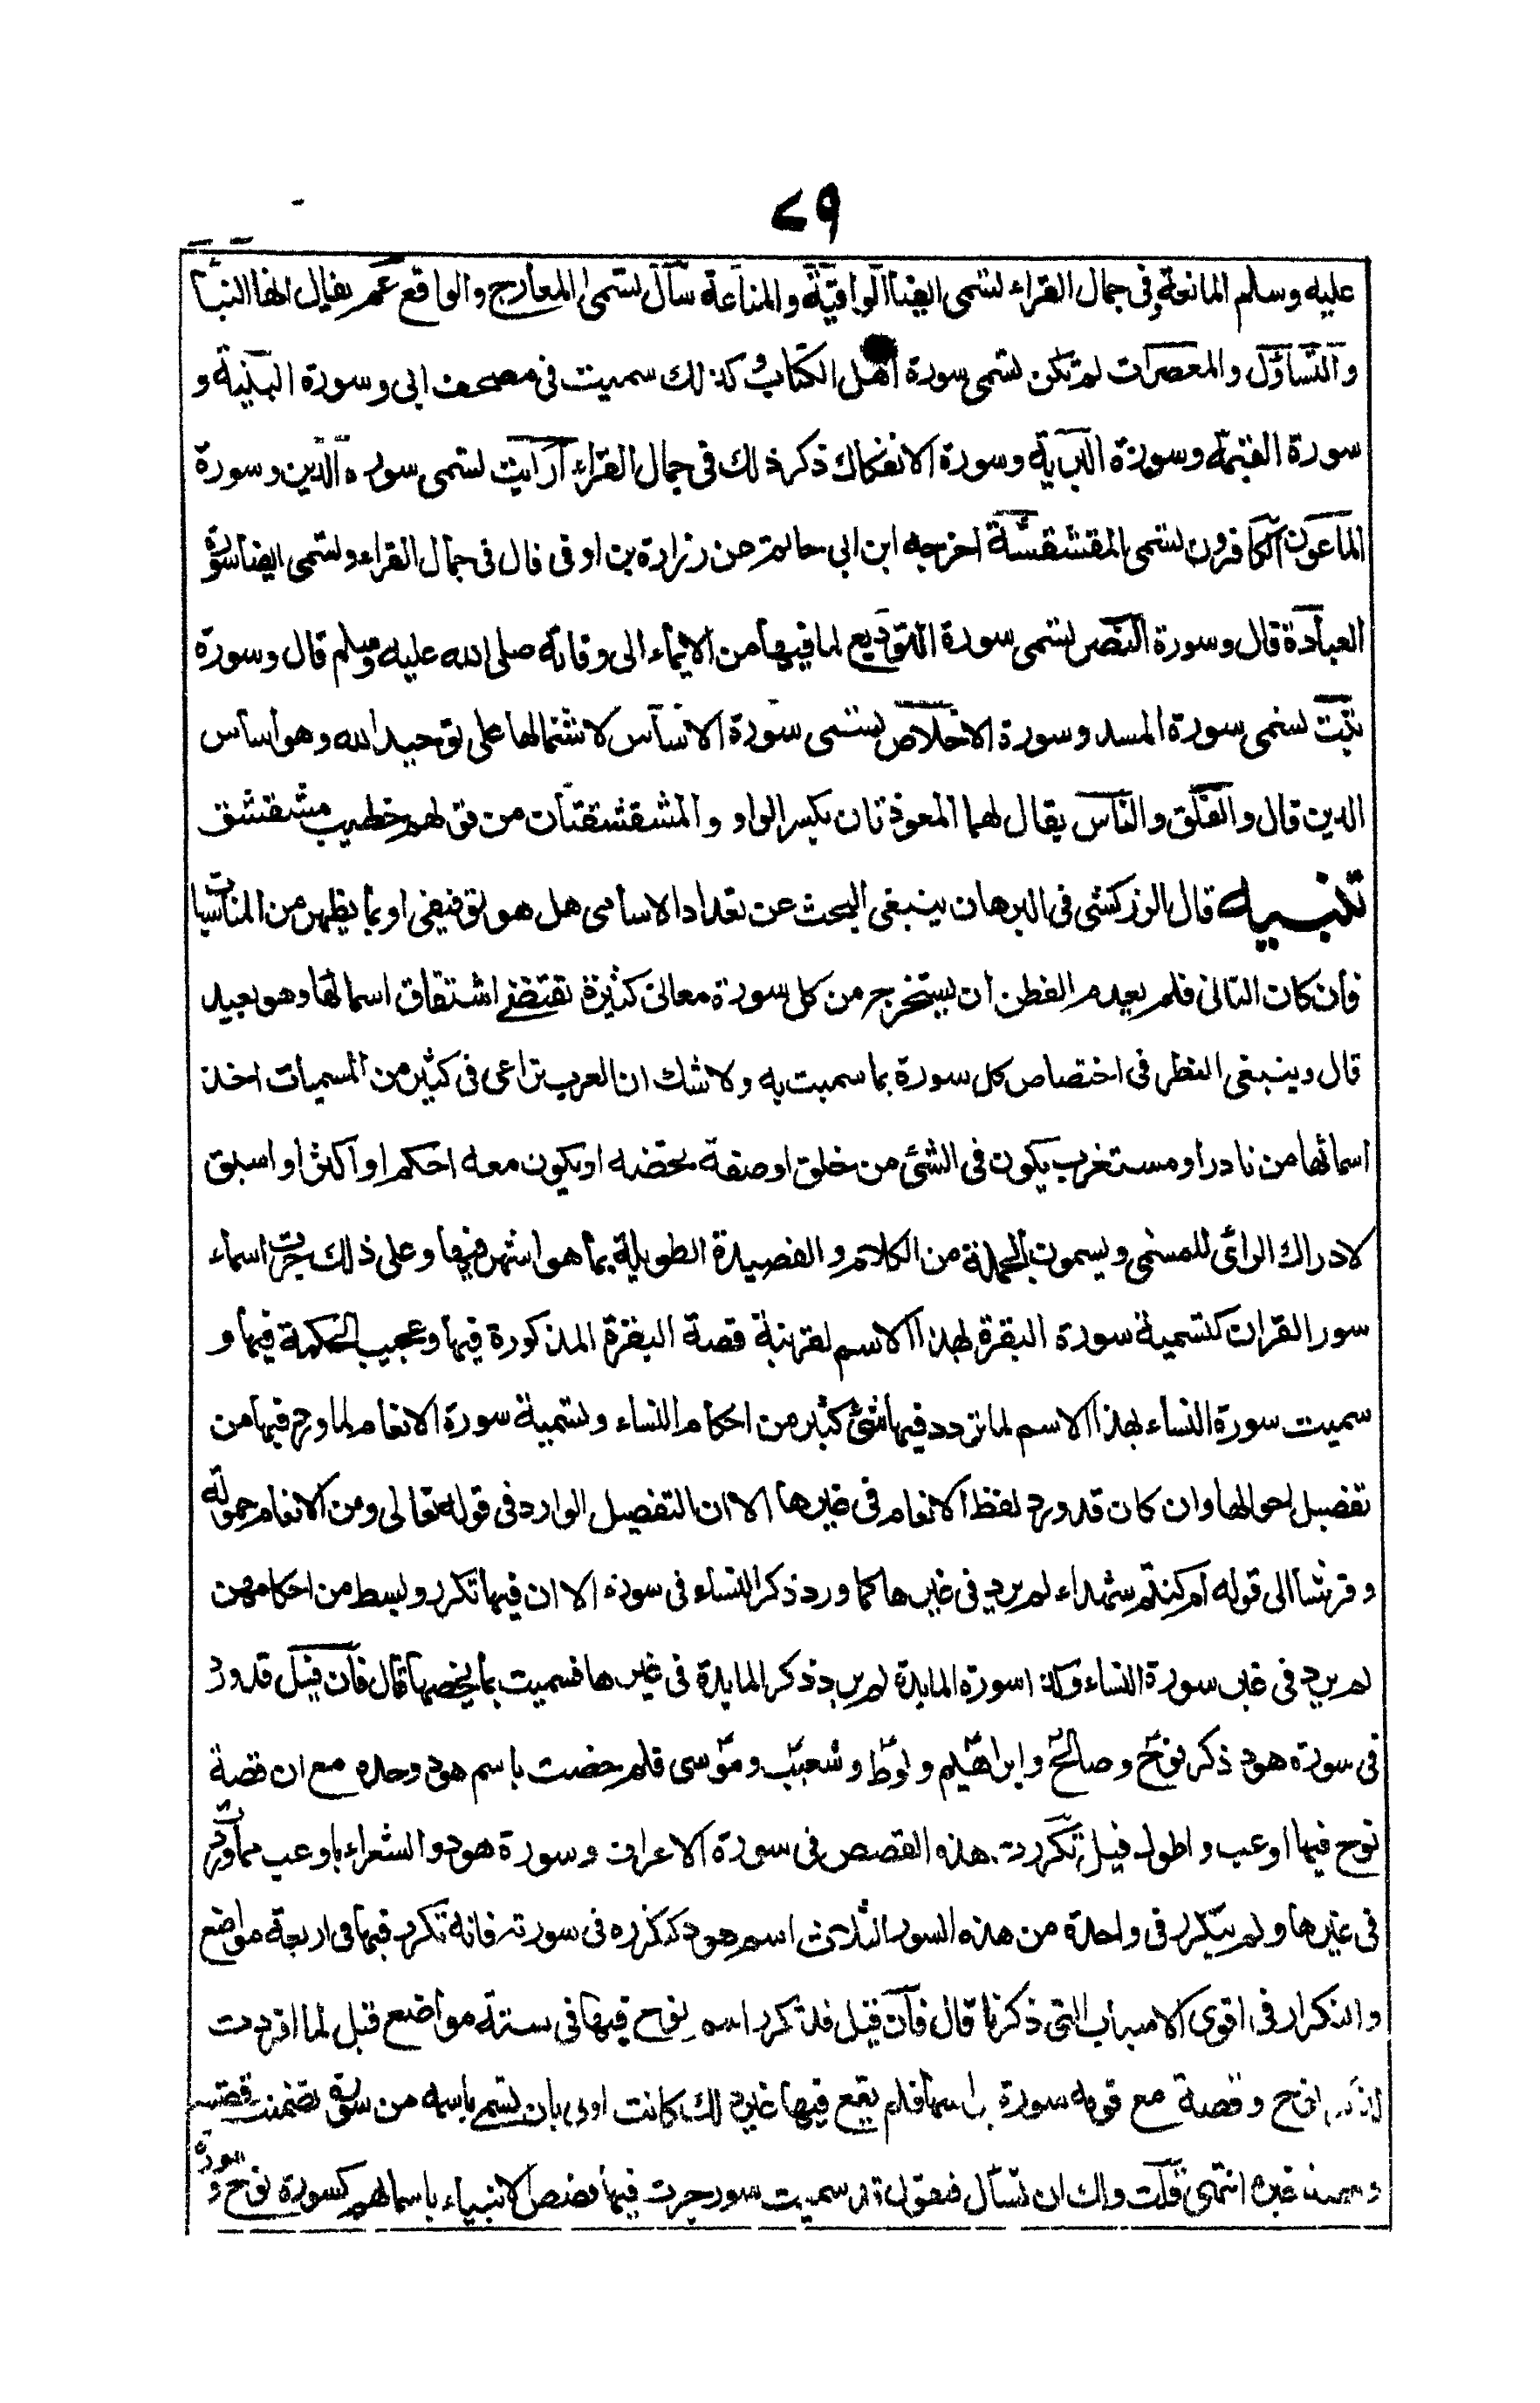 ٧٩
عليه وسلم المانعة وفى جمال القراء تسمى ايضا الواقية والمناعة سأل تسمى المعارج والواقع عم يقال لها النبأ
والتساؤل والمعصرات لم تكن تسمى سورة اهل الكتاب وكذلك سميت فى مصحف ابى وسورة البينة و
سورة القيمة وسورة البرية وسورة الانفكاك ذكر ذلك فى جمال القراء ارايت تسمى سورة الدين وسورة
الماعون الكافرون تسمى المقشقشة اخرجه ابن ابى حاتم عن زرارة بن اوفى قال فى جمال القراء وتسمى ايضا سورة
العبادة قال وسورة النصر تسمى سورة التوديع لما فيها من الايماء الى وفاته صلى الله عليه وسلم قال وسورة
تبت تسمى سورة المسد وسورة الاخلاص تسمى سورة الاساس لاشتمالها على توحيد الله وهو اساس
الدين قال والفلق والناس يقال لهما المعوذتان بكسر الواو والمشقشقتان من قولهم خطيب مشقشق
تنبيه قال الزركشى فى البرهان ينبغى البحث عن تعداد الاسامى هل هو توقيفى او بما يظهر من المناسبات
فان كان الثانى فلم يعدم الفطن ان يستخرج من كل سورة معانى كثيرة تقتضى اشتقاق اسمائها وهو بعيد
قال وينبغى النظر فى اختصاص كل سورة بما سميت به ولا شك ان العرب تراعى فى كثير من المسميات اخذ
اسمائها من نادر او مستغرب يكون فى الشئ من خلق او صفة تخصه او يكون معه احكم او اكثر او اسبق
لادراك الرائى للمسمى ويسمون الجملة من الكلام والقصيدة الطويلة بما هو اشهر فيها وعلى ذلك جرت اسماء
سور القران كتسمية سورة البقرة لهذا الاسم لقرينة قصة البقرة المذكورة فيها وعجيب الحكمة فيها و
سميت سورة النساء بهذا الاسم لما تردد فيها شئ كثير من احكام النساء وتسمية سورة الانعام لما ورد فيها من
تفصيل احوالها وان كان قد ورد لفظ الانعام فى غيرها الا ان التفصيل الوارد فى قوله تعالى ومن الانعام حمولة
وفرشا الى قوله ام كنتم شهداء لم يرد فى غيرها كما ورد ذكر النساء فى سورة الا ان فيها تكرر وبسط من احكامهن
لم يرد فى غير سورة النساء وكذا سورة المايدة لم يرد ذكر المايدة فى غيرها فسميت بما يخصها قال فان قيل قد ورد
فى سورة هود ذكر نوح وصالح وابراهيم ولوط وشعيب وموسى فلم خصت باسم هود وحده مع ان قصة
نوح فيها اوعب واطول قيل تكررت هذه القصص فى سورة الاعراف وسورة هود والشعراء باوعب مما وردت
فى غيرها ولم يتكرر فى واحدة من هذه السور الثلاث اسم هود كذكره فى سورته فانه تكرر فيها فى اربعة مواضع
والتكرار فى اقوى الاسباب التى ذكرنا قال فان قيل فقد تكرر اسم نوح فيها فى ستة مواضع قيل لما افردت
لذكر نوح وقصة مع قومه سورة براسها فلم يقع فيها غير ذلك كانت اولى بان تسمى باسمه من سورة تضمنت قصته
وقصة غيره انتهى قلت ولك ان تسأل فتقول قد سميت سور جرت فيها قصص الانبياء باسمائهم كسورة نوح وسورة